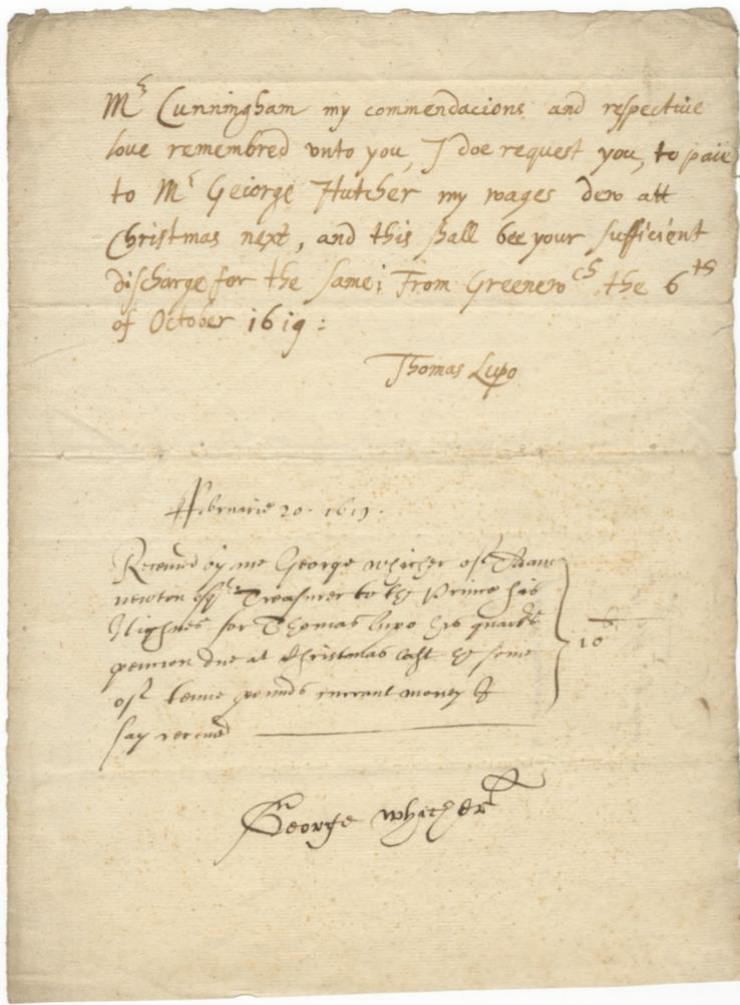 Mr Cunningham my commendacions and respective
love remembred vnto you, I doe request you, to paie
to Mr Geiorge Hutcher my wages dew att
Christmas next, and this shall bee your sufficient
discharge for the same; From Greenewch the 6th
of October 1619:
Thomas Lupo
ffebruarie 20. 1619.
Receiued by me George Whicher of Adam
newton Esqr Treasurer to the Prince his
Highnes for Thomas Lupo his quarters
pencion due at Christmas last the some
of tenne pounds currant money I
say receiued
10 li
George Whicher